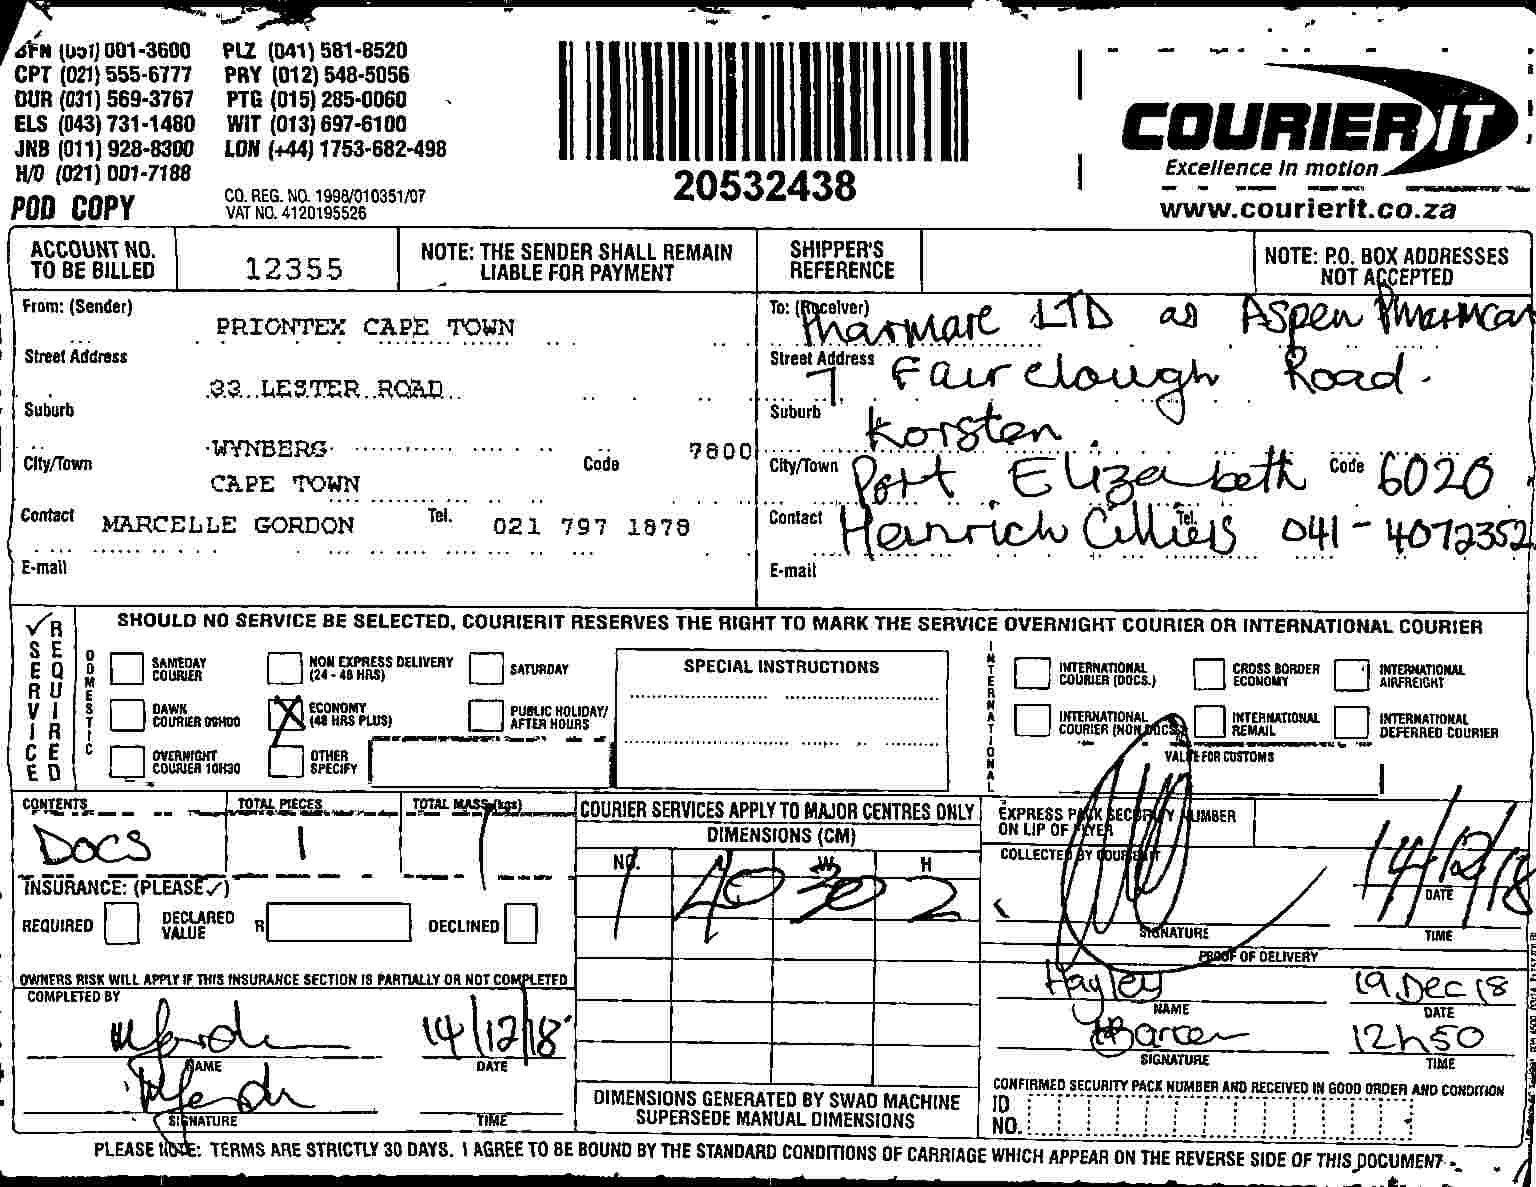 BFN (051) 001-3600 PLZ (041) 581-8520
CPT (021) 555-6777 PRY (012) 548-5056
DUR (031) 569-3767 PTG (015) 285-0060
ELS (043) 731-1480 WIT (013) 697-6100
JNB (011) 928-8300 LON (+44) 1753-682-498
H/O (021) 001-7188
POD COPY
CO. REG. NO. 1998/010351/07
VAT NO. 4120195526
20532438
COURIER IT
Excellence in motion
www.courierit.co.za
ACCOUNT NO. TO BE BILLED
12355
NOTE: THE SENDER SHALL REMAIN LIABLE FOR PAYMENT
SHIPPER'S REFERENCE
NOTE: P.O. BOX ADDRESSES NOT ACCEPTED
From: (Sender)
PRIONTEX CAPE TOWN
Street Address
33 LESTER ROAD
Suburb
WYNBERG
7800
City/Town
Code
CAPE TOWN
Contact MARCELLE GORDON Tel. 021 797 1878
E-mail
To: (Receiver)
Pharmare LTD as Aspen Pharmcar
Street Address
7 Fairclough Road.
Suburb
Korsten
City/Town Port Elizabeth Code 6020
Contact Heinrich Cilliers Tel. 041-4072352
E-mail
SERVICE REQUIRED
SHOULD NO SERVICE BE SELECTED, COURIERIT RESERVES THE RIGHT TO MARK THE SERVICE OVERNIGHT COURIER OR INTERNATIONAL COURIER
DOMESTIC
SAMEDAY COURIER
NON EXPRESS DELIVERY (24 - 48 HRS)
SATURDAY
DAWN COURIER 09H00
ECONOMY (48 HRS PLUS)
PUBLIC HOLIDAY/ AFTER HOURS
OVERNIGHT COURIER 10H30
OTHER SPECIFY
SPECIAL INSTRUCTIONS
INTERNATIONAL
INTERNATIONAL COURIER (DOCS.)
CROSS BORDER ECONOMY
INTERNATIONAL AIRFREIGHT
INTERNATIONAL COURIER (NON DOCS.)
INTERNATIONAL REMAIL
INTERNATIONAL DEFERRED COURIER
VALUE FOR CUSTOMS
CONTENTS
DOCS
TOTAL PIECES
1
TOTAL MASS (kgs)
1
INSURANCE: (PLEASE ✓)
REQUIRED
DECLARED VALUE R
DECLINED
OWNERS RISK WILL APPLY IF THIS INSURANCE SECTION IS PARTIALLY OR NOT COMPLETED
COMPLETED BY
14/12/18
NAME DATE
SIGNATURE TIME
COURIER SERVICES APPLY TO MAJOR CENTRES ONLY
DIMENSIONS (CM)
NO. W H
1 40 30 2
DIMENSIONS GENERATED BY SWAD MACHINE SUPERSEDE MANUAL DIMENSIONS
EXPRESS PACK SECURITY NUMBER ON LIP OF FLYER
COLLECTED BY COURIERIT
14/12/18
DATE
SIGNATURE TIME
PROOF OF DELIVERY
Hayley 19 Dec 18
NAME DATE
12h50
SIGNATURE TIME
CONFIRMED SECURITY PACK NUMBER AND RECEIVED IN GOOD ORDER AND CONDITION
ID NO.
PLEASE NOTE: TERMS ARE STRICTLY 30 DAYS. I AGREE TO BE BOUND BY THE STANDARD CONDITIONS OF CARRIAGE WHICH APPEAR ON THE REVERSE SIDE OF THIS DOCUMENT